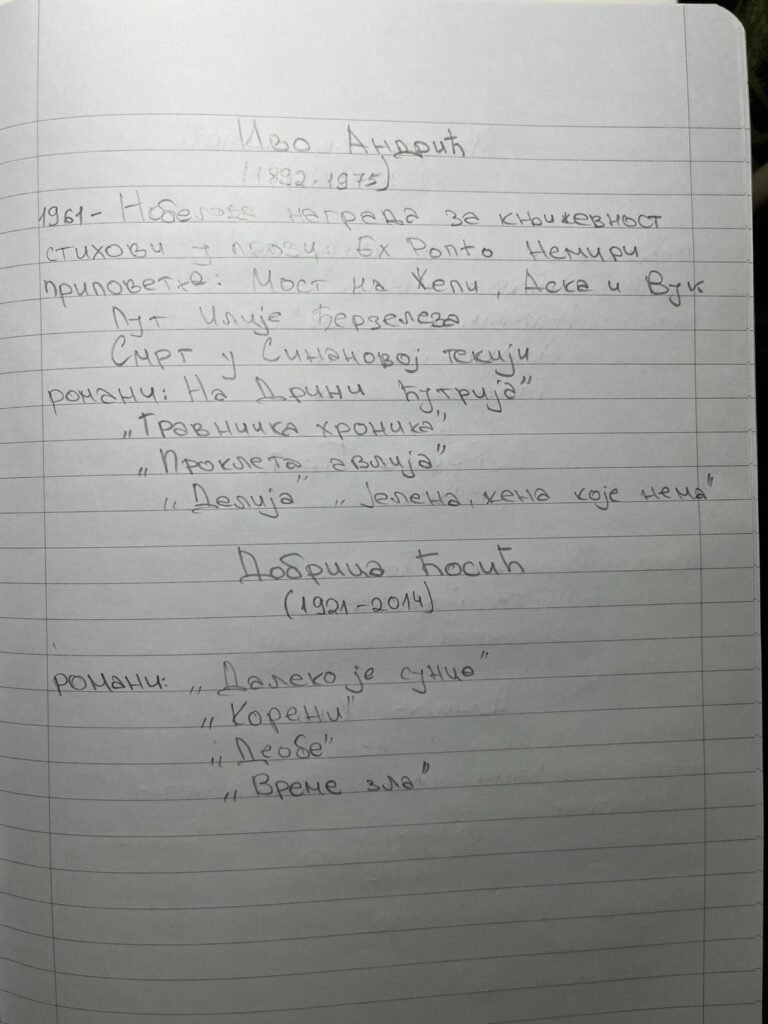 Иво Андрић
(1892-1975)
1961- Нобелова награда за књижевност
стихови у прози: Ex Ponto Немири
приповетка: Мост на Жепи, Аска и Вук
Пут Илије Ђерзелеза
Смрт у Синановој текији
романи: На Дрини ћутрија"
„Травничка хроника"
„Проклета авлија"
„Делија" „Јелена, жена које нема"
Добрица Ћосић
(1921-2014)
романи: „Далеко је сунце"
„Корени"
„Деобе"
„Време зла"